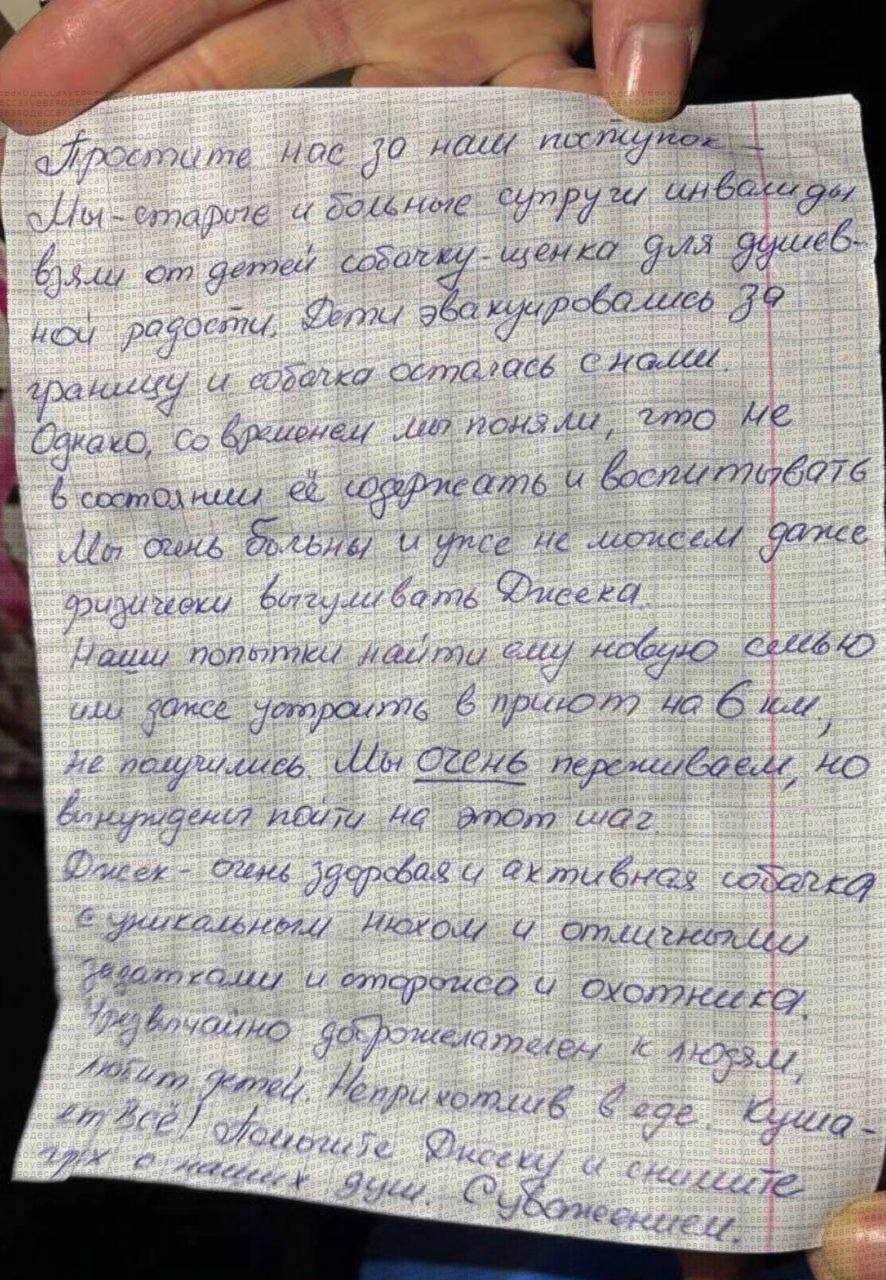 Простите нас за наш поступок –
Мы – старые и больные супруги инвалиды
взяли от детей собачку-щенка для душев-
ной радости. Дети эвакуировались за
границу и собачка осталась с нами.
Однако, со временем мы поняли, что не
в состоянии её содержать и воспитывать
Мы очень больны и уже не можем даже
физически выгуливать Джека.
Наши попытки найти ему новую семью
или даже устроить в приют на 6 км.,
не получились. Мы очень переживаем, но
вынуждены пойти на этот шаг
Джек – очень здоровая и активная собачка
с уникальным нюхом и отличными
задатками и сторожа и охотника.
Чрезвычайно доброжелателен к людям,
любит детей. Неприхотлив в еде. Куша-
ет Всё! Помогите Джеку и снимите
грех с наших душ. С уважением.